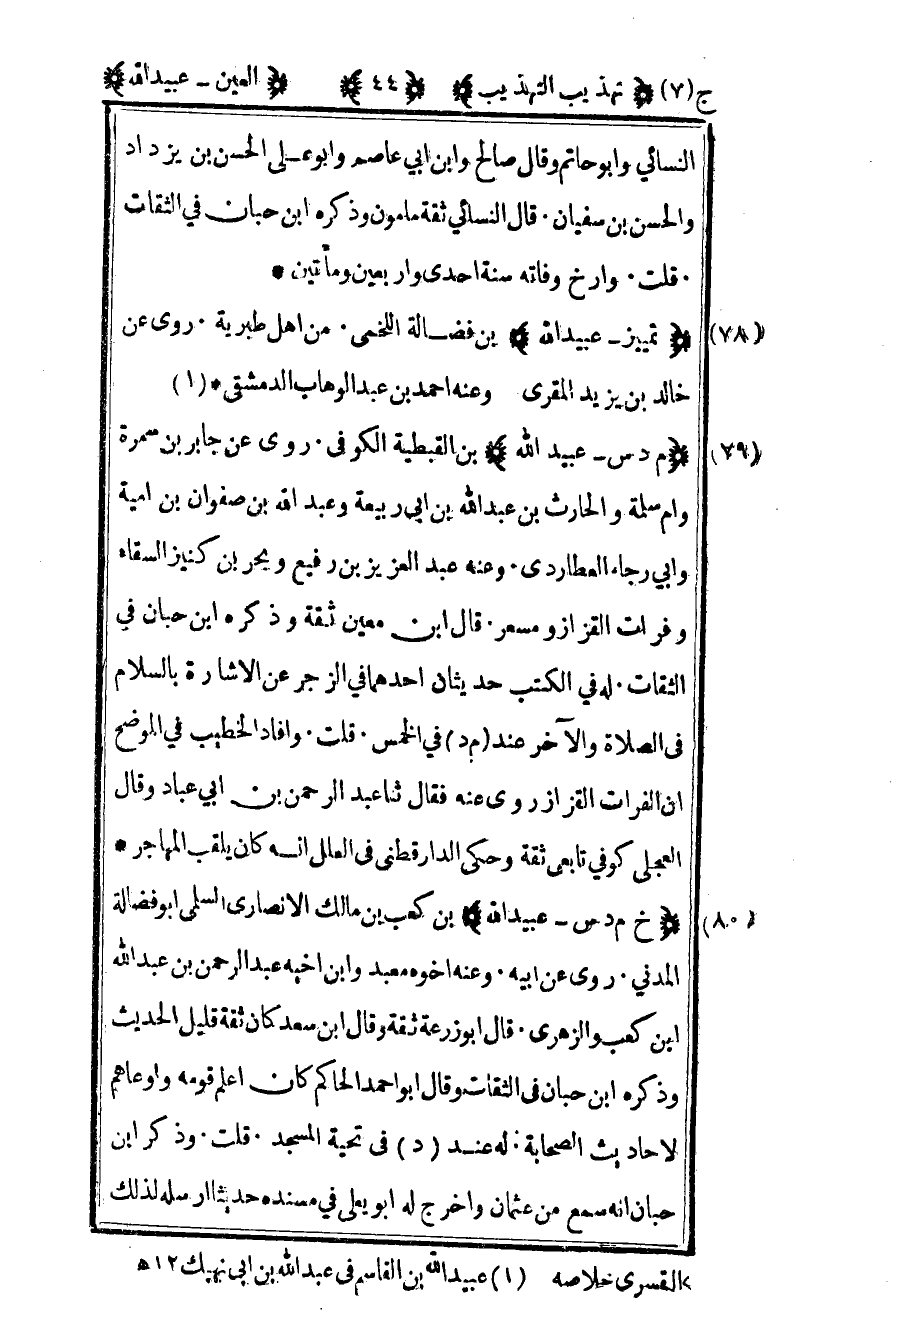 ج (٧) ﴿ تهذيب التهذيب ﴾ ﴿ ٤٤ ﴾ ﴿ العين ــ عبيدالله ﴾
النسائي وابوحاتم وقال صالح وابن ابي عاصم وابويعلى الحسن بن يزداد
والحسن بن سفيان · قال النسائي ثقة مامون وذكره ابن حبان في الثقات
· قلت · وارخ وفاته سنة احدى واربعين ومأتين *
(٧٨) ﴿ تمييز ــ عبيدالله ﴾ بن فضالة اللخمى · من اهل طبرية · روى عن
خالد بن يزيد المقرى وعنه احمد بن عبدالوهاب الدمشقى * (١)
(٧٩) ﴿ م د س ــ عبيد الله ﴾ بن القبطية الكوفى · روى عن جابر بن سمرة
وام سلمة والحارث بن عبدالله بن ابي ربيعة وعبد الله بن صفوان بن امية
وابي رجاء العطاردى · وعنه عبد العزيز بن رفيع ويحر بن كنيز السقاء
وفرات القزاز ومسعر · قال ابن معين ثقة وذكره ابن حبان في
الثقات · له في الكتب حديثان احدهما في الزجر عن الاشارة بالسلام
فى الصلاة والآخر عند (م د) في الخمس · قلت · وافاد الخطيب في الموضح
ان الفرات القزاز روى عنه فقال ثنا عبد الرحمن بن ابي عباد وقال
العجلى كوفي تابعى ثقة وحكى الدارقطنى فى العلل انه كان يلقب المهاجر *
(٨٠) ﴿ خ م د س ــ عبيدالله ﴾ بن كعب بن مالك الانصارى السلمى ابو فضالة
المدني · روى عن ابيه · وعنه اخوه معبد وابن اخيه عبدالرحمن بن عبدالله
ابن كعب والزهرى · قال ابوزرعة ثقة وقال ابن سعد كان ثقة قليل الحديث
وذكره ابن حبان فى الثقات وقال ابو احمد الحاكم كان اعلم قومه واوعاهم
لاحاديث الصحابة · له عند (د) فى تحية المسجد · قلت · وذكر ابن
حبان انه سمع من عثمان واخرج له ابويعلى في مسنده حديثا ارسله لذلك
>القسرى خلاصه (١) عبيدالله بن القاسم فى عبدالله بن ابي نهيك ١٢ ه